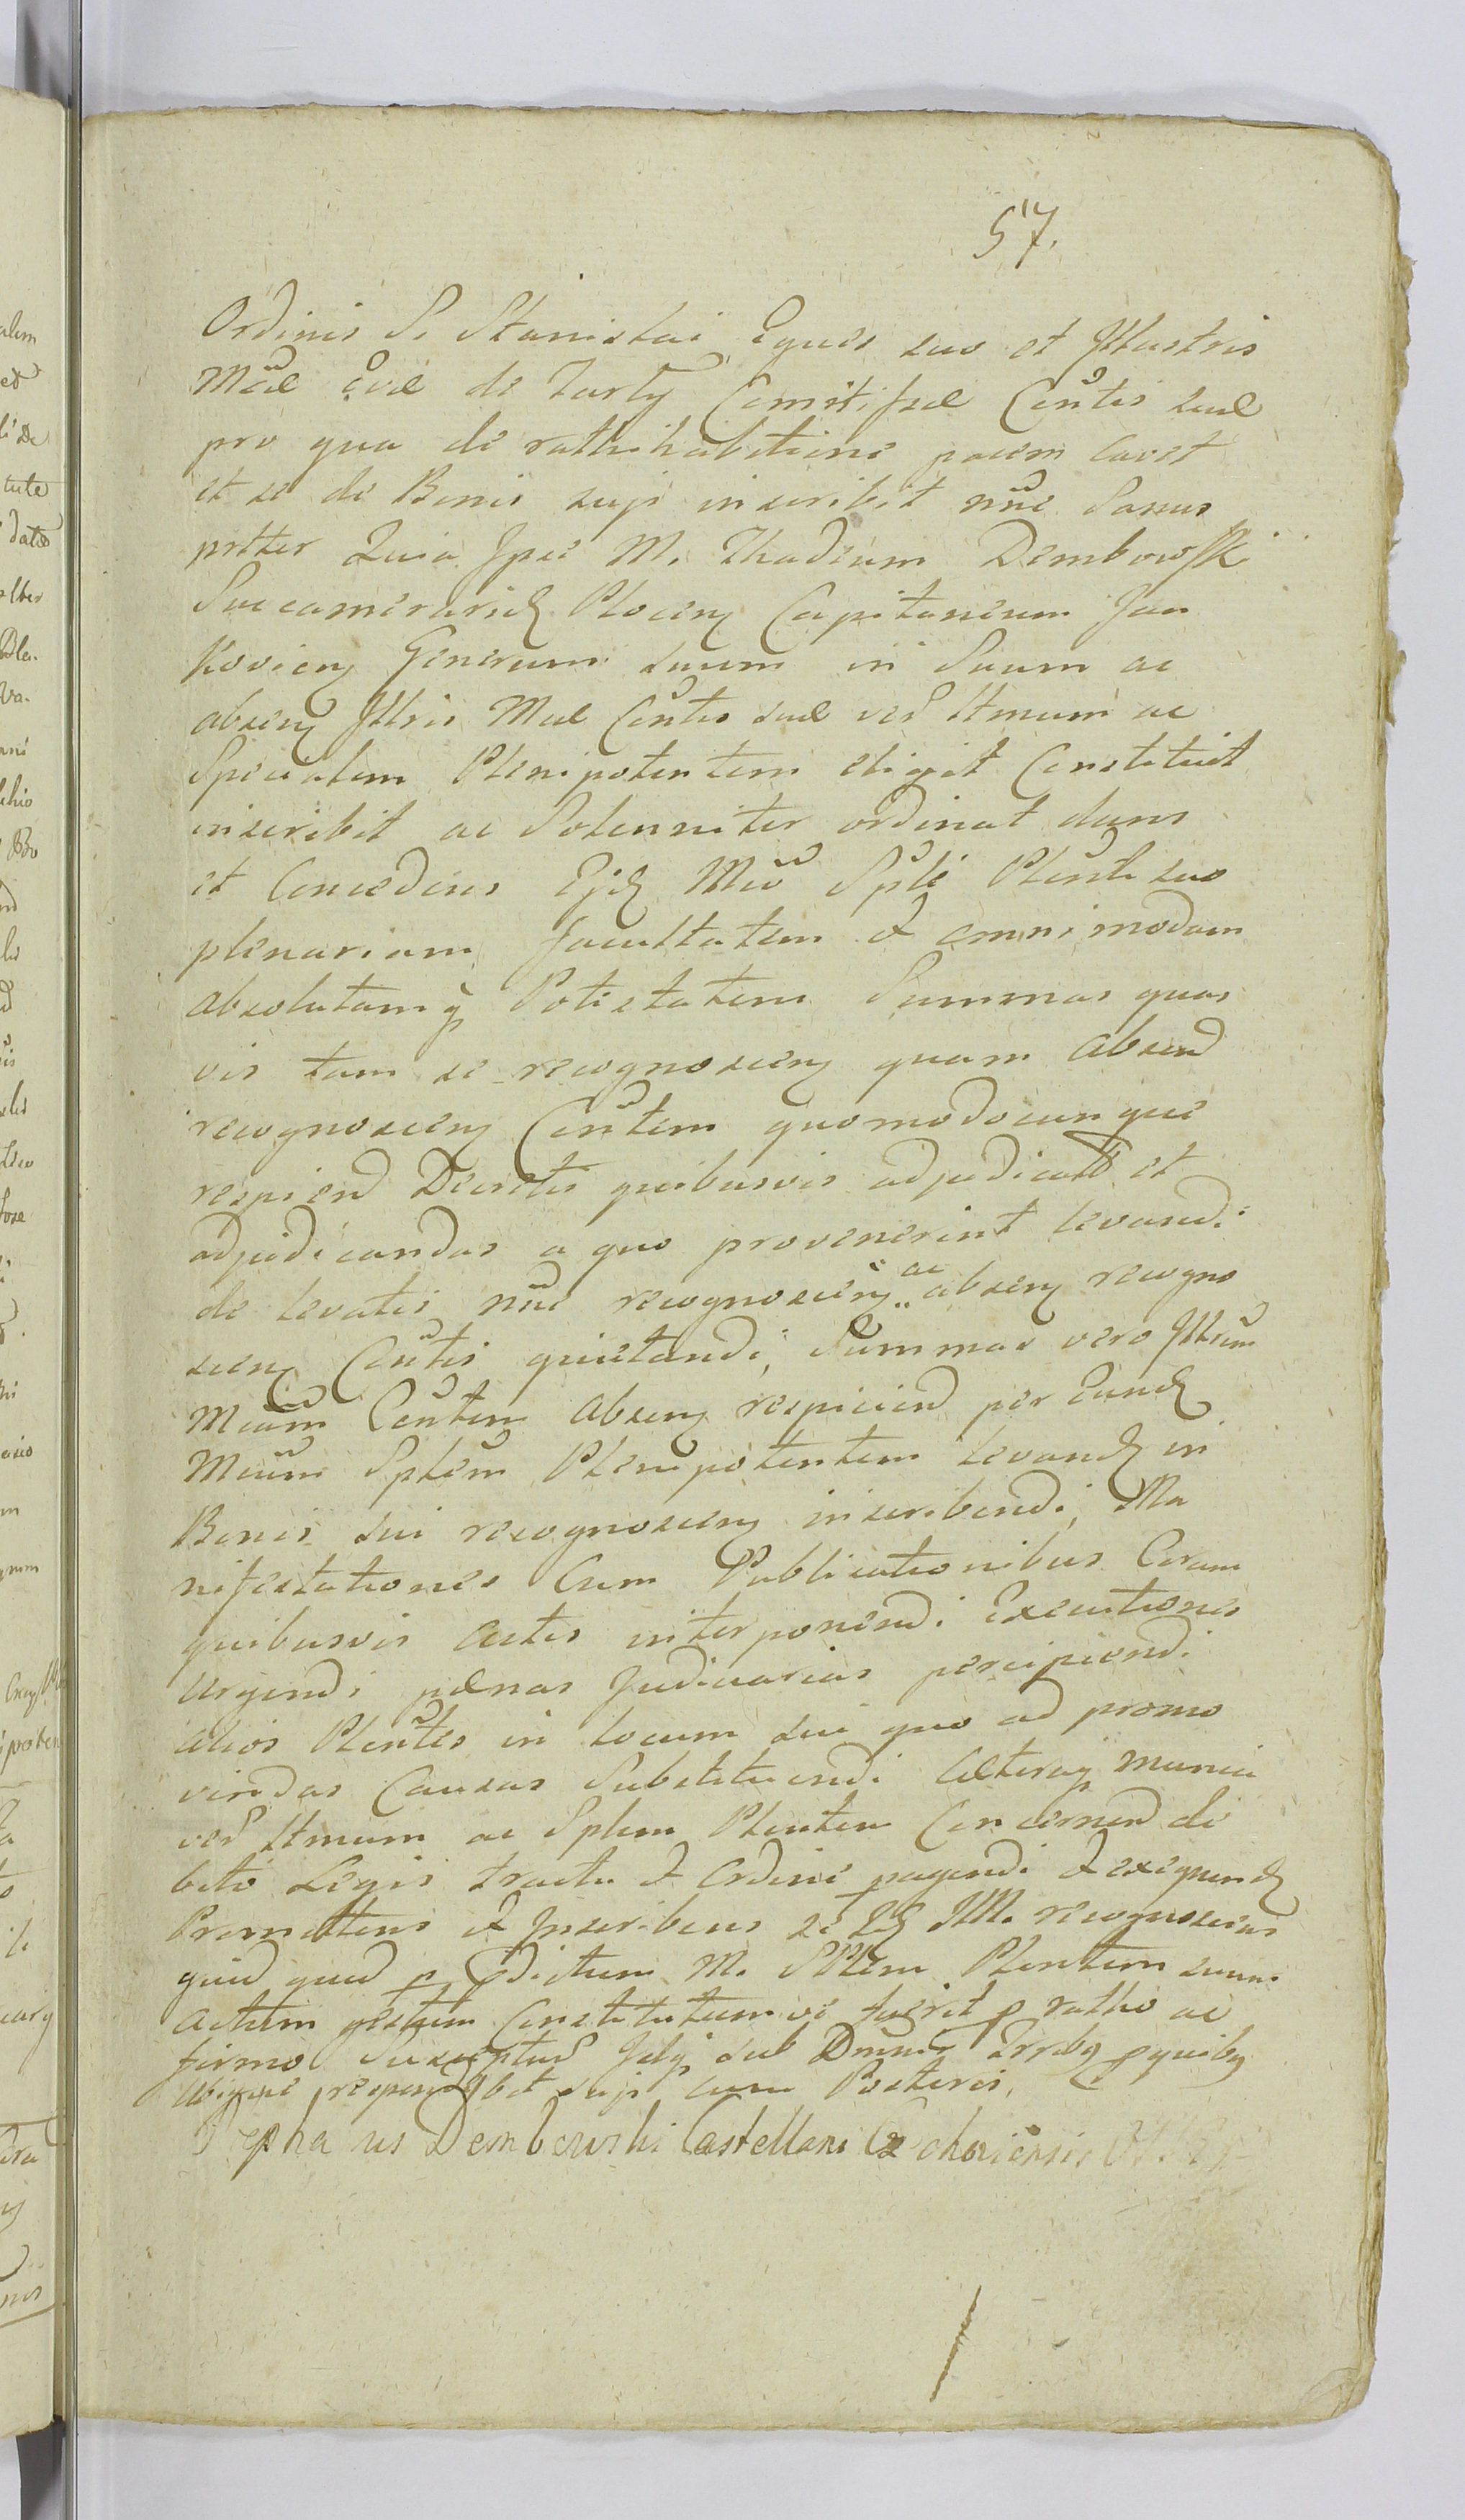 57.
Ordinis S. Stanislai Eques suo et Illustris
Mcae Evae de Tarły Comitissae Contis suae
pro qua de rathihabitione pacem cavet
et se de Bonis suis inscribit nne Sanus
pttter Quia Ipse M. Thadeum Dembowski
Succamerarid Plocen Capitaneum Jan
koviens Generum suum in Suum ac
absens Illris Mae Contis suae verd Itmum ac
Specialem Plenipotentem eligit Constituit
inscribit ac Solenniter ordinat dans
et Concedens Ejd Mco Spli Plenti suo
plenariam facultatem et omnimodam
absolutamq Potestatem Summas quas
vis tam se recognoscens quam absend
recognoscens Contem quomodocunque
respiend Decretis quibusvis adjudicatt et
adjudicandas a quo provenerint levandi
de levatis nne recognoscens ac absens recogno
scens Contis quietandi, Summas vero Illrem
Mcam Contem absens respiciend per Eund
Mcum Splem Plenipotentem levand in
Bonis sui recognoscens inscribendi, Ma
nifestationes Cum Publicationibus Coram
quibusvis Actis interponendi Executiones
urgendi paenas Judiciarias percipiendi
alios Plentes in locum sui quo ad promo
vendas Causas Substituendi Caeteraq munia
verd Itmum ac Splem Plentem Concernend de
bito Legis tractu et Ordine pagendi et exequend
Promittens et Inscribens se Id IM. recognoscens
quid quid p pdictum M. Splem Plentem suum
actum gestum Constitutumve fuerit p ratho ac
firmo suscepturd Idq sub Dmnis Terrbq p quibq
ubique respondebit suis cum Posteris.
Dembowski Castellan Czechoviensis